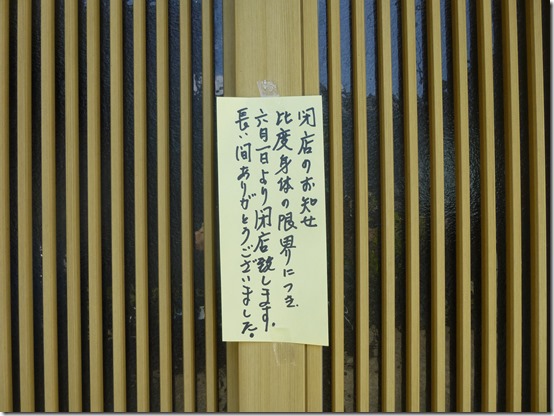 閉店のお知せ
比度身体の限界につき
六月一日より閉店致します。
長い間ありがとうございました。